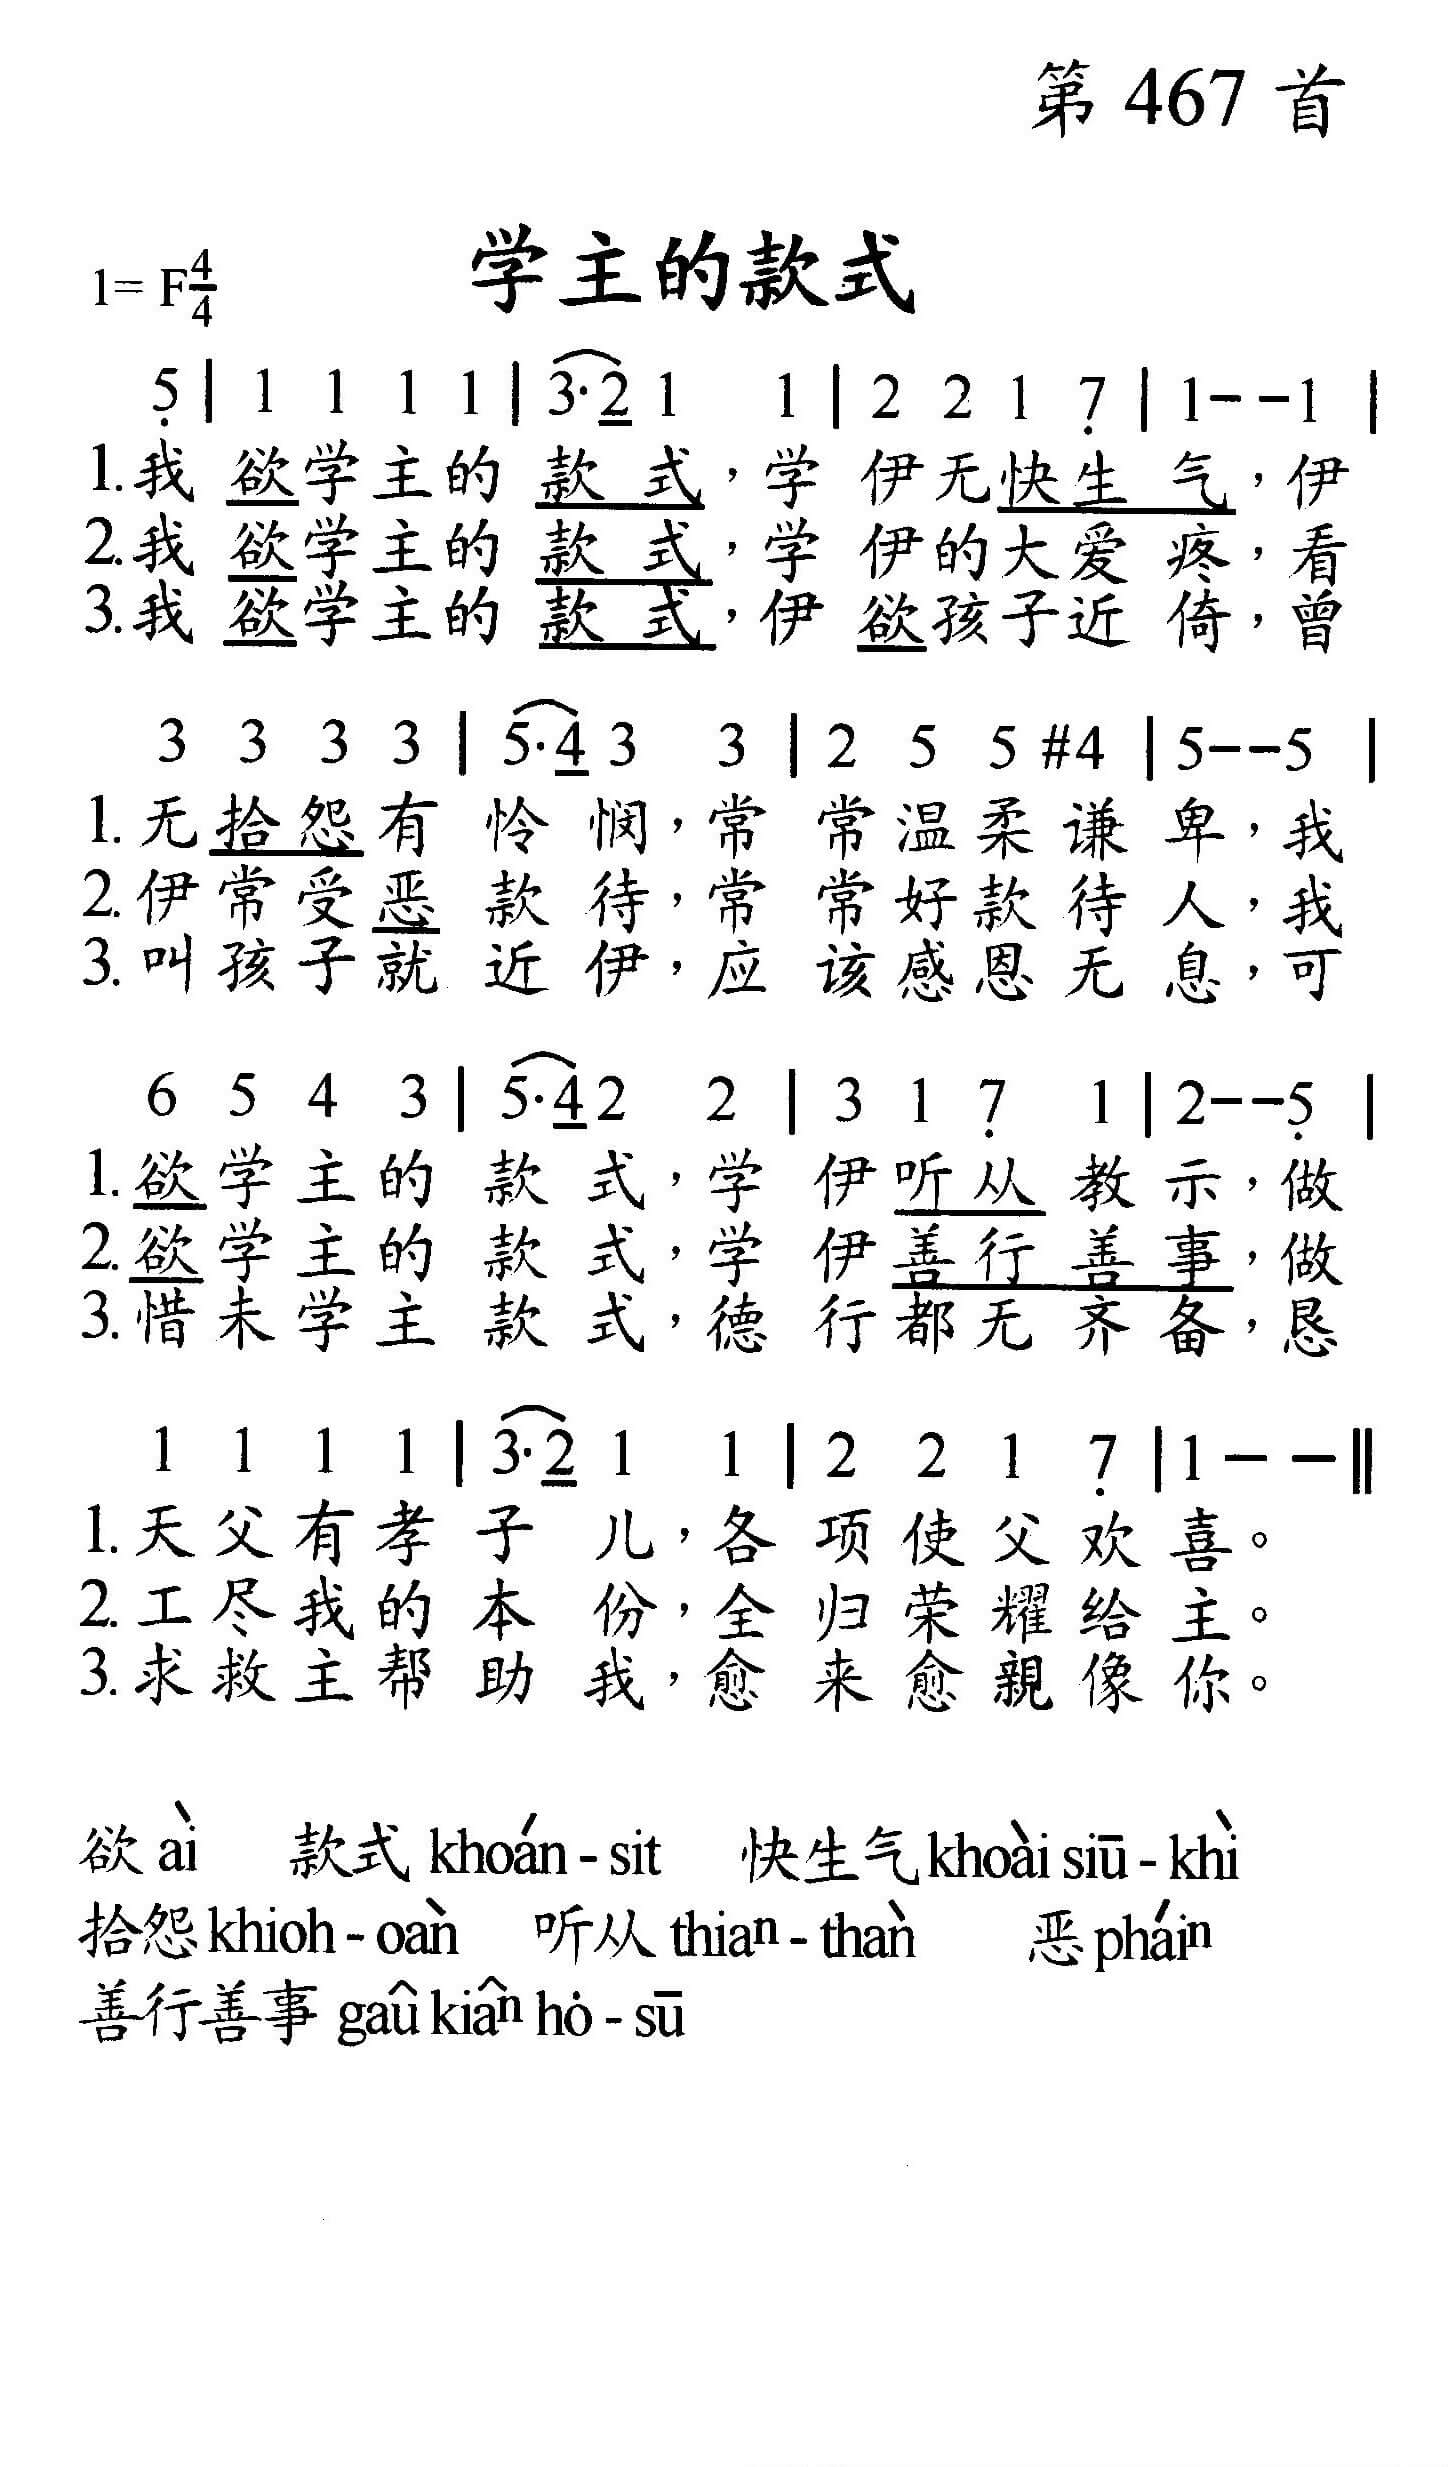 第 467 首
学主的款式
1= F 4/4
5̣ | 1 1 1 1 | 3·2 1 1 | 2 2 1 7̣ | 1--1 |
1.我欲学主的款式，学伊无快生气，伊
2.我欲学主的款式，学伊的大爱疼，看
3.我欲学主的款式，伊欲孩子近倚，曾
3 3 3 3 | 5·4 3 3 | 2 5 5 #4 | 5--5 |
1.无拾怨有怜悯，常常温柔谦卑，我
2.伊常受恶款待，常常好款待人，我
3.叫孩子就近伊，应该感恩无息，可
6 5 4 3 | 5·4 2 2 | 3 1 7̣ 1 | 2--5̣ |
1.欲学主的款式，学伊听从教示，做
2.欲学主的款式，学伊善行善事，做
3.惜未学主款式，德行都无齐备，恳
1 1 1 1 | 3·2 1 1 | 2 2 1 7̣ | 1 - - ‖
1.天父有孝子儿，各项使父欢喜。
2.工尽我的本份，全归荣耀给主。
3.求救主帮助我，愈来愈親像你。
欲 aì 款式 khoán-sit 快生气 khoài siū-khì
拾怨 khioh-oàn 听从 thiaⁿ-thàn 恶 pháiⁿ
善行善事 gaû kiâⁿ hó-sū